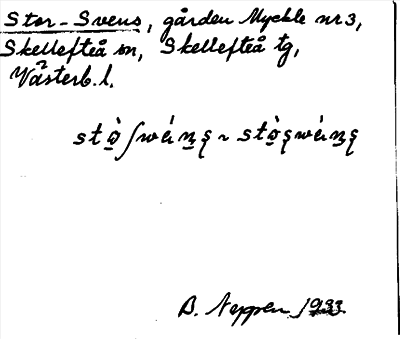 Stor-Svens, gården Myckle nr 3,
Skellefteå sn, Skellefteå tg,
Västerb. l.
B. Neppen 1933